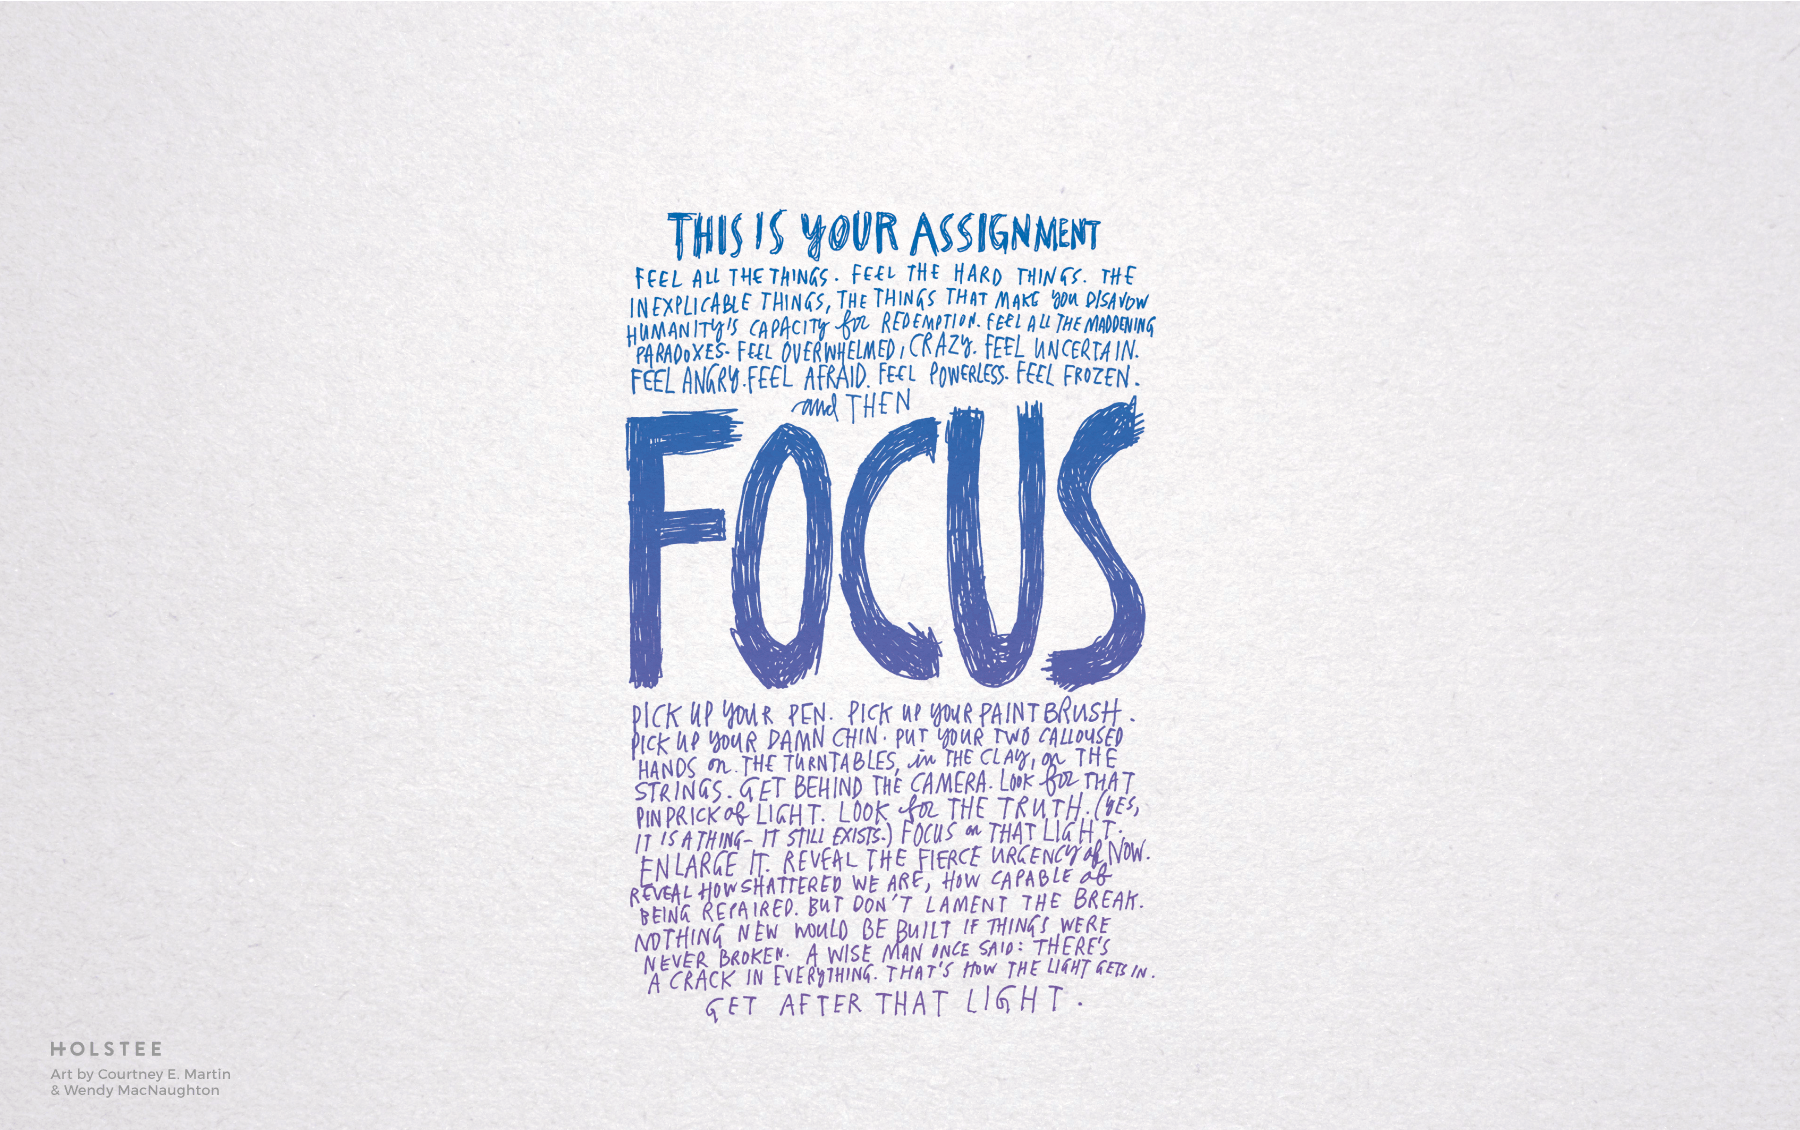 THIS IS YOUR ASSIGNMENT
FEEL ALL THE THINGS. FEEL THE HARD THINGS. THE
INEXPLICABLE THINGS, THE THINGS THAT MAKE YOU DISAVOW
HUMANITY'S CAPACITY for REDEMPTION. FEEL ALL THE MADDENING
PARADOXES. FEEL OVERWHELMED, CRAZY. FEEL UNCERTAIN.
FEEL ANGRY. FEEL AFRAID. FEEL POWERLESS. FEEL FROZEN.
and THEN
FOCUS
PICK UP YOUR PEN. PICK UP YOUR PAINTBRUSH.
PICK UP YOUR DAMN CHIN. PUT YOUR TWO CALLOUSED
HANDS on THE TURNTABLES, in THE CLAY, on THE
STRINGS. GET BEHIND THE CAMERA. LOOK for THAT
PINPRICK of LIGHT. LOOK for THE TRUTH. (YES,
IT IS A THING– IT STILL EXISTS.) FOCUS on THAT LIGHT.
ENLARGE IT. REVEAL THE FIERCE URGENCY of NOW.
REVEAL HOW SHATTERED WE ARE, HOW CAPABLE of
BEING REPAIRED. BUT DON'T LAMENT THE BREAK.
NOTHING NEW WOULD BE BUILT IF THINGS WERE
NEVER BROKEN. A WISE MAN ONCE SAID: THERE'S
A CRACK IN EVERYTHING. THAT'S HOW THE LIGHT GETS IN.
GET AFTER THAT LIGHT.
HOLSTEE
Art by Courtney E. Martin
& Wendy MacNaughton